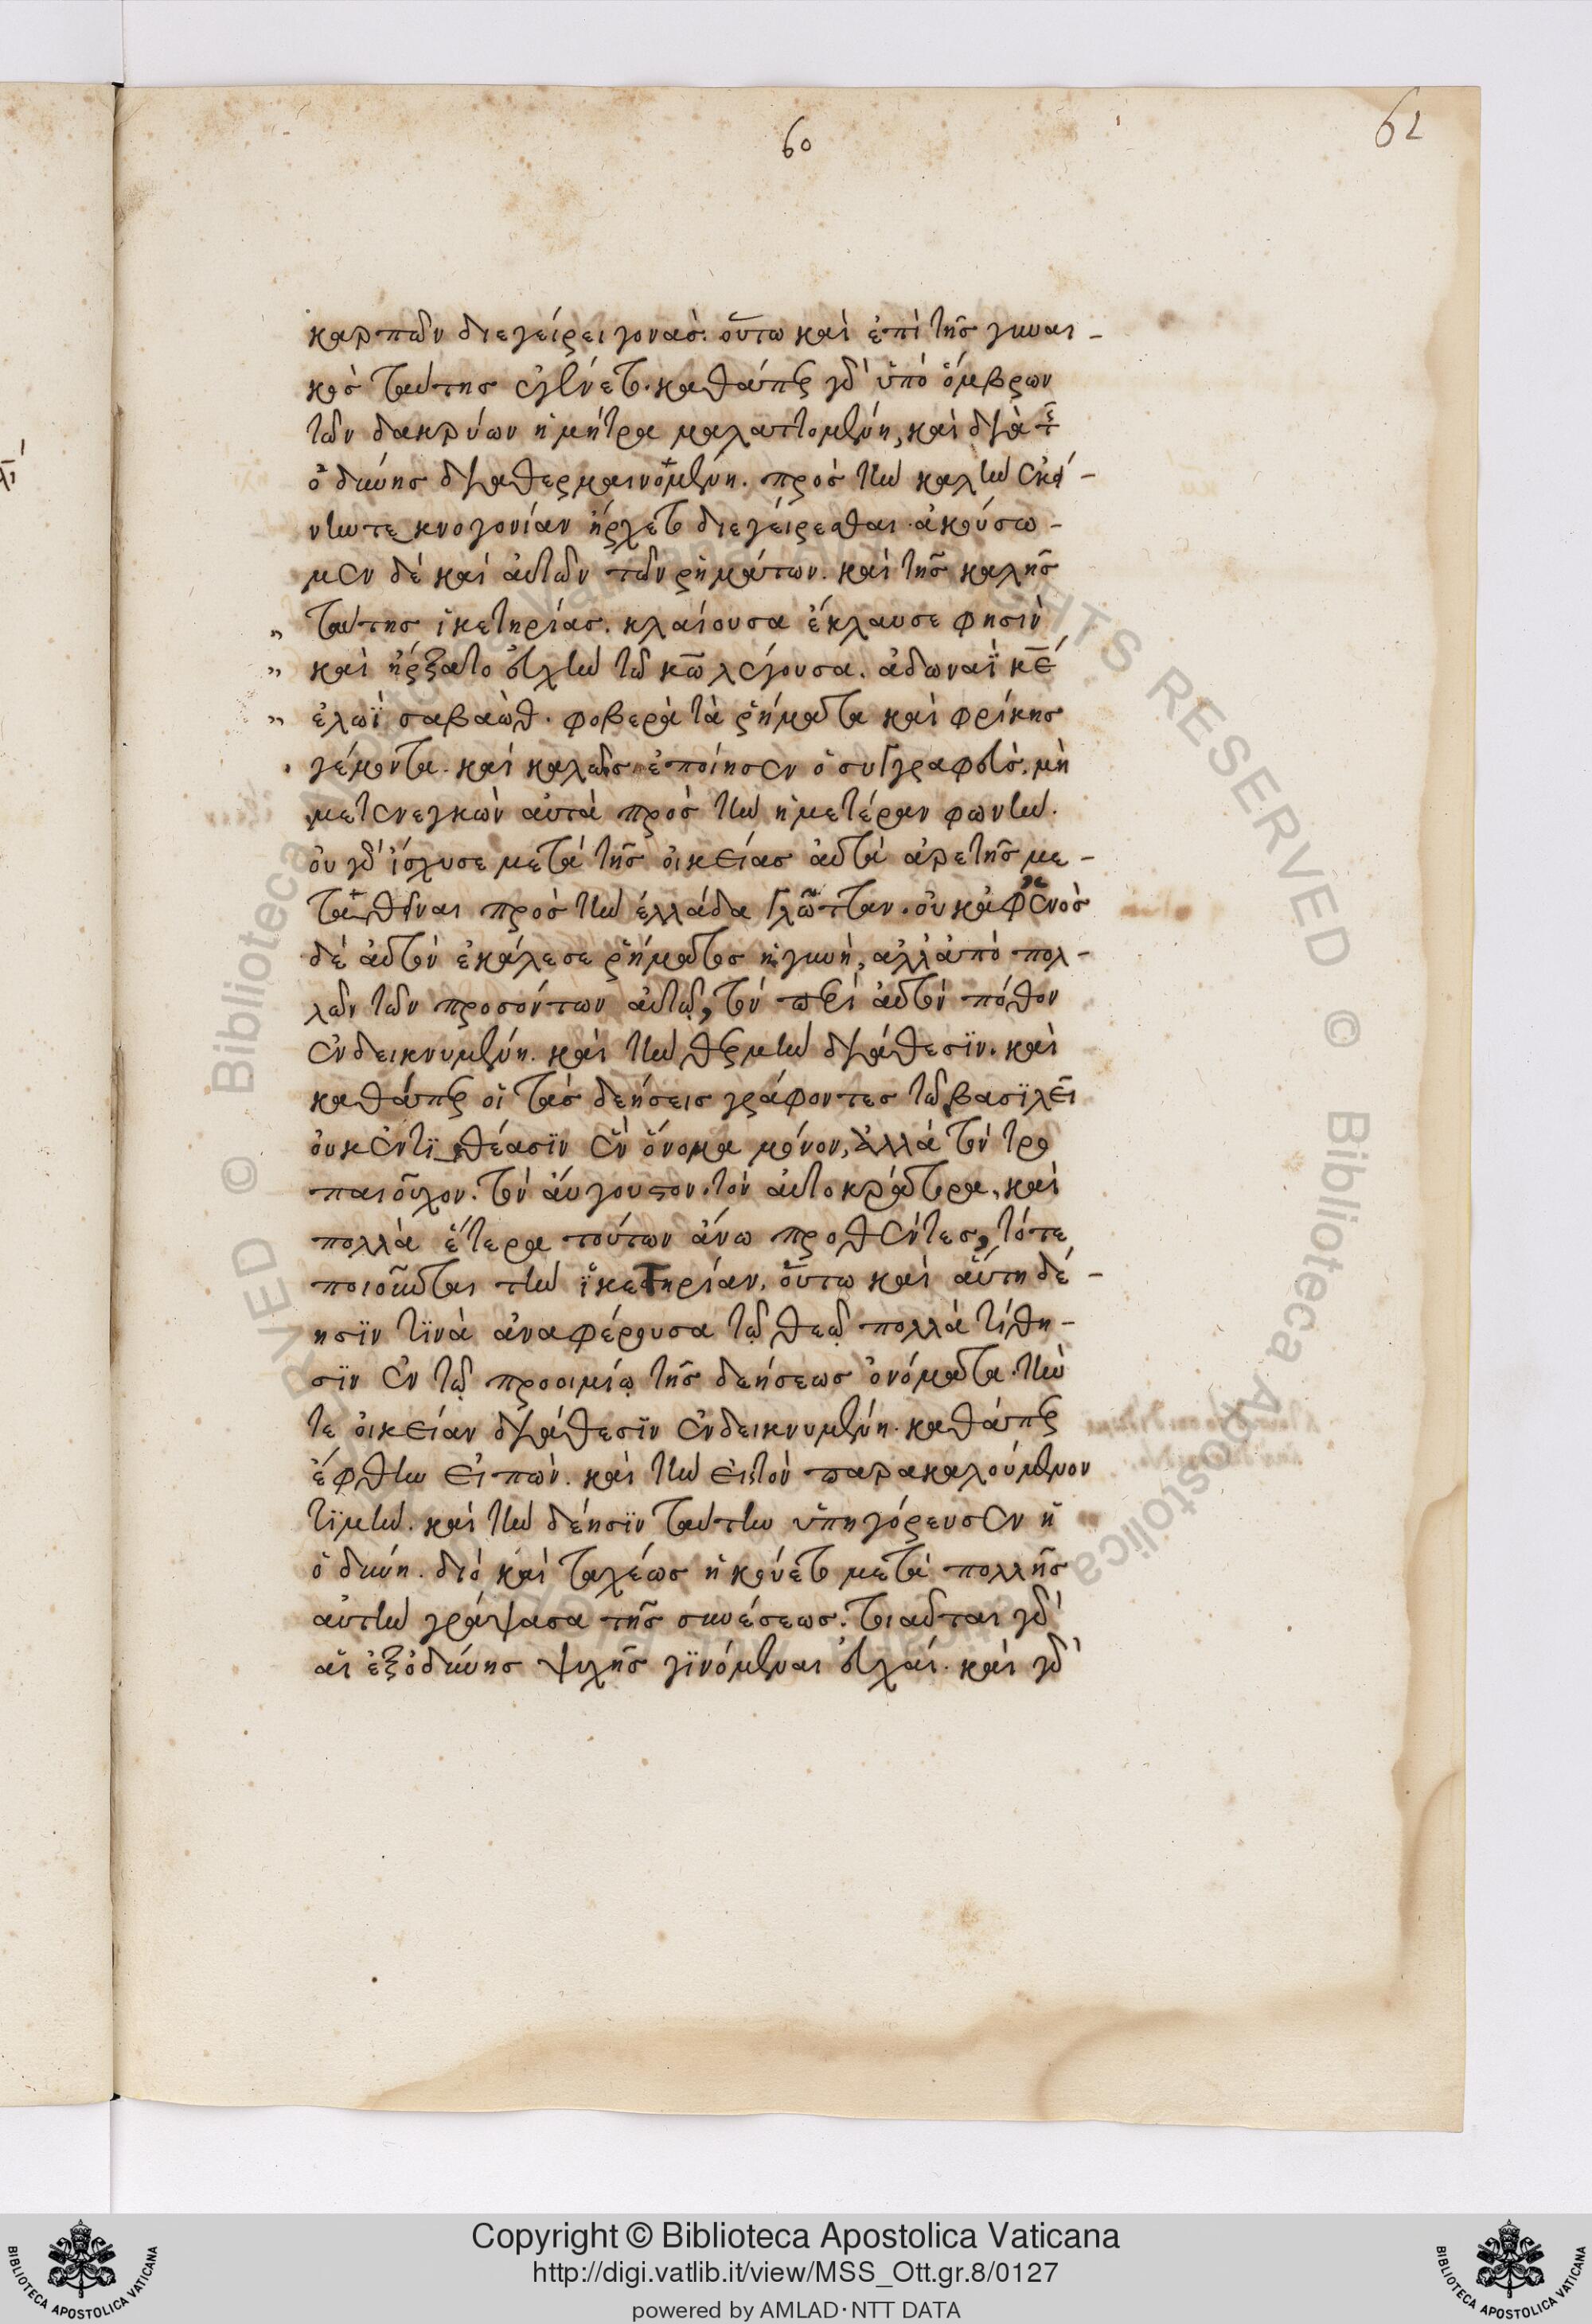 60
62
καρπῶν διεγείρει γονάσ. οὕτω καὶ ἐπὶ τῆσ γυναι-
κὸσ ταύτησ ἐγένετο. καθάπερ γὰρ ὑπὸ ὄμβρων
τῶν δακρύων ἡ μήτρα μαλαττομένη, καὶ διὰ τῆς
ὀδύνησ διαθερμαινομένη. πρὸσ τὴν καλὴν ἐκεί-
νην τεκνογονίαν ἤρχετο διεγείρεσθαι. ἀκούσω-
μεν δὲ καὶ αὐτῶν τῶν ῥημάτων. καὶ τῆσ καλῆσ
ταύτησ ἱκετηρίασ. κλαίουσα ἔκλαυσε φησὶν
καὶ ἤρξατο εὐχὴν τῶ κ̅ω̅ λέγουσα. ἀδωναῒ κ̅ε̅
ἐλωῒ σαβαὼθ. φοβερὰ τὰ ῥήματα καὶ φρίκησ
γέμοντα. καὶ καλῶσ ἐποίησεν ὁ συγγραφεὺσ. μὴ
μετενεγκὼν αὐτὰ πρὸσ τὴν ἡμετέραν φωνὴν.
οὐ γὰρ ἴσχυσε μετὰ τῆσ οἰκείασ αὐτὰ ἀρετῆσ με-
ταθεῖναι πρὸσ τὴν ἑλλάδα γλῶτταν. οὐκ ἀφ' ἑνὸσ
δὲ αὐτὸν ἐκάλεσε ῥήματοσ ἡ γυνή, ἀλλ' ἀπὸ πολ-
λῶν τῶν προσόντων αὐτῷ, τὸν περὶ αὐτὸν πόθον
ἐνδεικνυμένη. καὶ τὴν θερμὴν διάθεσϊν. καὶ
καθάπερ οἱ τὰσ δεήσεισ γράφοντεσ τῶ βασϊλεῖ
οὐκ ἐντϊθέασϊν ἓν ὄνομα μόνον, ἀλλὰ τὸν τρο
παιοῦχον. τὸν αὔγουστον. τὸν αὐτοκράτορα, καὶ
πολλὰ ἕτερα τούτων ἄνω προθέντεσ, τότε
ποιοῦνται τὴν ἱκετηρίαν. οὕτω καὶ αὕτη δέ-
ησϊν τϊνὰ ἀναφέρουσα τῷ θεῷ πολλὰ τίθη-
σϊν ἐν τῷ προοιμίῳ τῆσ δεήσεωσ ὀνόματα. τήν
τε οἰκείαν διάθεσϊν ἐνδεικνυμένη. καθάπερ
ἔφθην εἰπών. καὶ τὴν εἰσ τὸν παρακαλούμενον
τϊμήν. καὶ τὴν δέησϊν ταύτην ὑπηγόρευσεν ἡ
ὀδύνη. διὸ καὶ ταχέωσ ἠκούετο μετὰ πολλῆσ
αὐτὴν γράψασα τῆσ συνέσεωσ. τοιαῦται γὰρ
αἱ ἐξ ὀδύνησ ψυχῆσ γϊνόμεναι εὐχαί. καὶ γὰρ
Copyright © Biblioteca Apostolica Vaticana
http://digi.vatlib.it/view/MSS_Ott.gr.8/0127
powered by AMLAD·NTT DATA